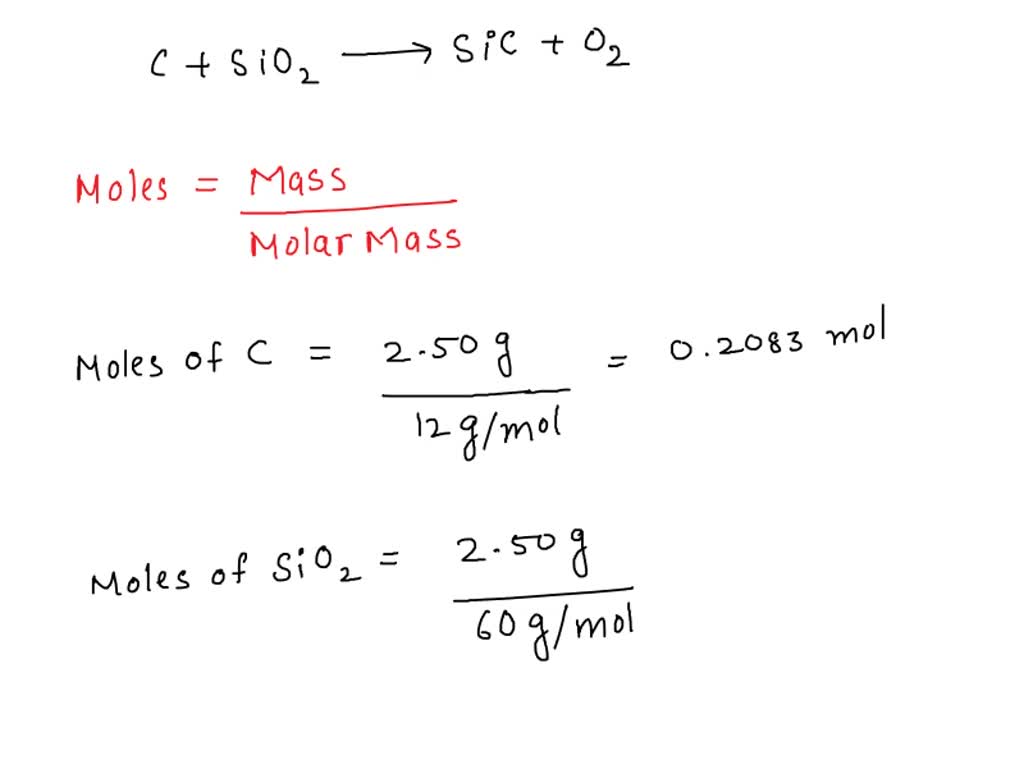 C + SiO₂ ⟶ SiC + O₂
Moles = Mass
Molar Mass
Moles of C = 2.50 g = 0.2083 mol
12 g/mol
Moles of SiO₂ = 2.50 g
60 g/mol